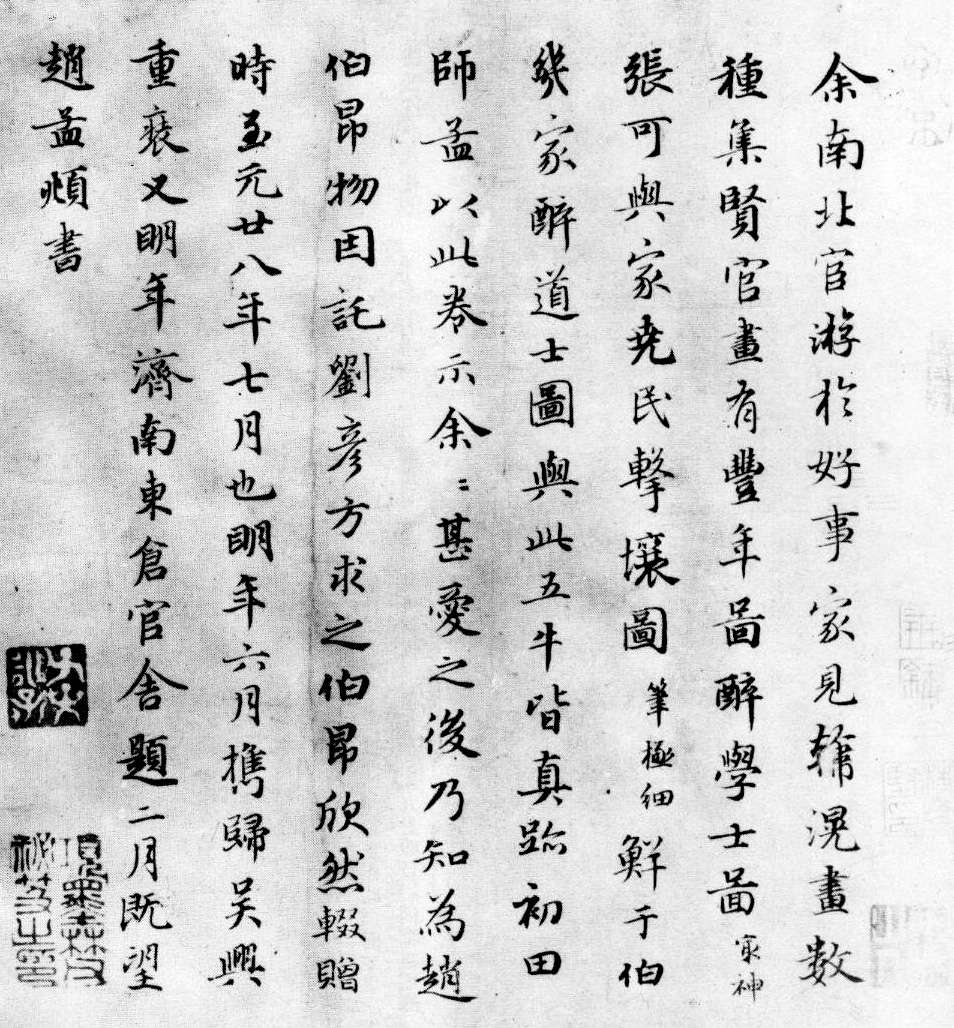 余南北宦游於好事家見韓滉畫數
種集賢官畫有豐年啚醉學士啚 冣神
張可與家堯民擊壤圖 筆極細 鮮于伯
幾家醉道士圖與此五牛皆真跡初田
師孟以此卷示余〻甚愛之後乃知為趙
伯昂物因託劉彥方求之伯昂欣然輟贈
時至元廿八年七月也明年六月攜歸吳興
重裝又明年濟南東倉官舍題二月既望
趙孟頫書
項墨林父
秘笈之印